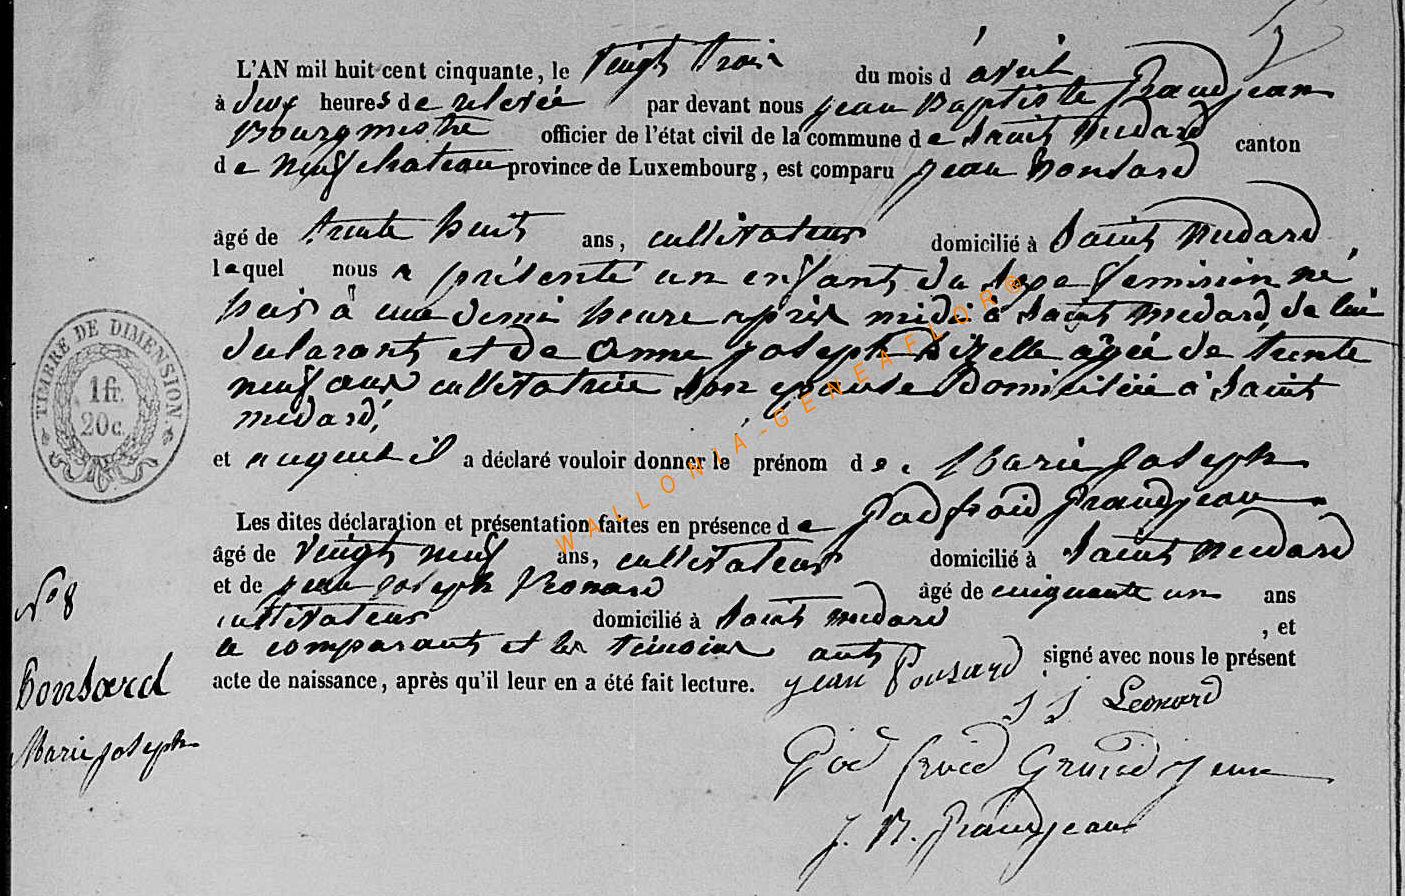 L'AN mil huit cent cinquante, le vingt trois du mois d'avril
à deux heures de relevée par devant nous jean Baptiste Grandjean
Bourgmestre officier de l'état civil de la commune de Saint Medard canton
de neufchateau province de Luxembourg, est comparu jean Ponsard
âgé de trente huit ans, cultivateur domicilié à Saint Medard
lequel nous a présenté un enfant du sexe feminin né
à une demi heure après midi à Saint medard, de lui
declarant et de anne joseph agée de trente
neuf ans cultivatrice son epouse domiciliée à Saint
medard,
et auquel il a déclaré vouloir donner le prénom de Marie joseph
Les dites déclaration et présentation faites en présence de godfroid grandjean
âgé de vingt neuf ans, cultivateur domicilié à Saint medard
et de jean joseph Leonard âgé de cinquante un ans
cultivateur domicilié à Saint medard, et
le comparant et les témoins ont signé avec nous le présent
acte de naissance, après qu'il leur en a été fait lecture.
jean Ponsard
J J Leonard
God froid Grandjean
J. B. Grandjean
N° 8
Ponsard
Marie joseph
TIMBRE DE DIMENSION
1 fr.
20 c.
WALLONIA-GENEAFLOR©